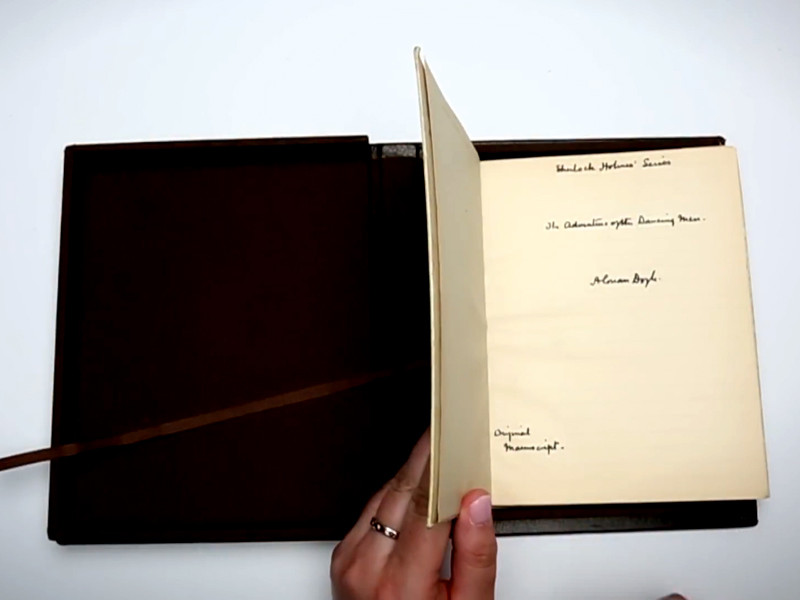 Sherlock Holmes' Series
The Adventure of the Dancing Men.
A Conan Doyle.
Original
Manuscript.